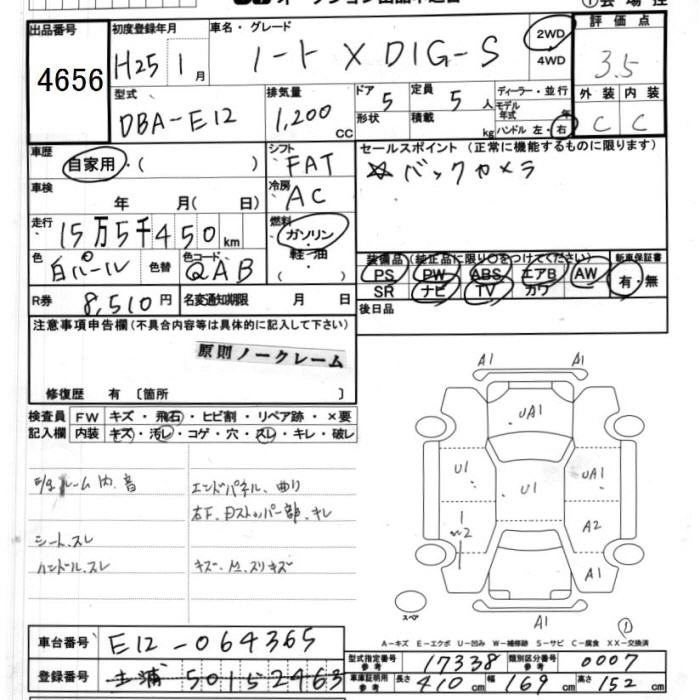 出品番号 4656
初度登録年月 H25年 1月
車名・グレード ノート X DIG-S
2WD
4WD
評価点 3.5
外装 内装
C C
型式 DBA-E12
排気量 1,200 CC
ドア 5
形状
定員 5 人
積載 kg
ディーラー・並行
モデル年式 年
ハンドル 左・右
車歴 自家用・( )
シフト FAT
セールスポイント (正常に機能するものに限ります)
☆ バックカメラ
車検 年 月( 日)
冷房 AC
走行 15万5千450km
燃料 ガソリン・軽・油 ( )
色 白パール 色替
色コード QAB
装備品 (装正品に限り○をつけてください)
PS PW ABS エアB AW
SR ナビ TV カワ
新車保証書 有・無
R券 8,510円
名変通知期限 月 日
後日品
注意事項申告欄(不具合内容等は具体的に記入して下さい)
原則ノークレーム
修復歴 有 〔箇所 〕
検査員記入欄
FW キズ・飛石・ヒビ割・リペア跡・×要
内装 キズ・汚レ・コゲ・穴・スレ・キレ・破レ
ルーム内、音
シート、スレ
ハンドル、スレ
エンドパネル、曲り
右F、Dストッパー部、キレ
キズ、M、スリキズ
A1 A1
UA1
U1 U1 UA1
A2
A1
A1
スペア
①
A-キズ E-エクボ U-凹み W-補修跡 S-サビ C-腐食 XX-交換済
車台番号 E12-064365
登録番号 土浦 501 5 2463
型式指定番号 参考 17338
類別区分番号 参考 0007
車庫証明用 参考 長さ 410 cm 幅 169 cm 高さ 152 cm